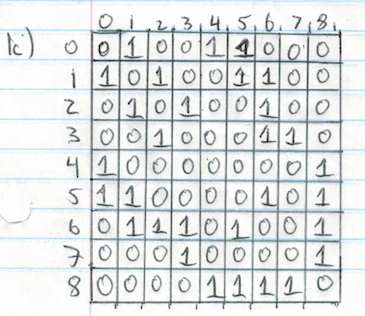 0 1 2 3 4 5 6 7 8
k) 0 0 1 0 0 1 1 0 0 0
1 1 0 1 0 0 1 1 0 0
2 0 1 0 1 0 0 1 0 0
3 0 0 1 0 0 0 1 1 0
4 1 0 0 0 0 0 0 0 1
5 1 1 0 0 0 0 1 0 1
6 0 1 1 1 0 1 0 0 1
7 0 0 0 1 0 0 0 0 1
8 0 0 0 0 1 1 1 1 0